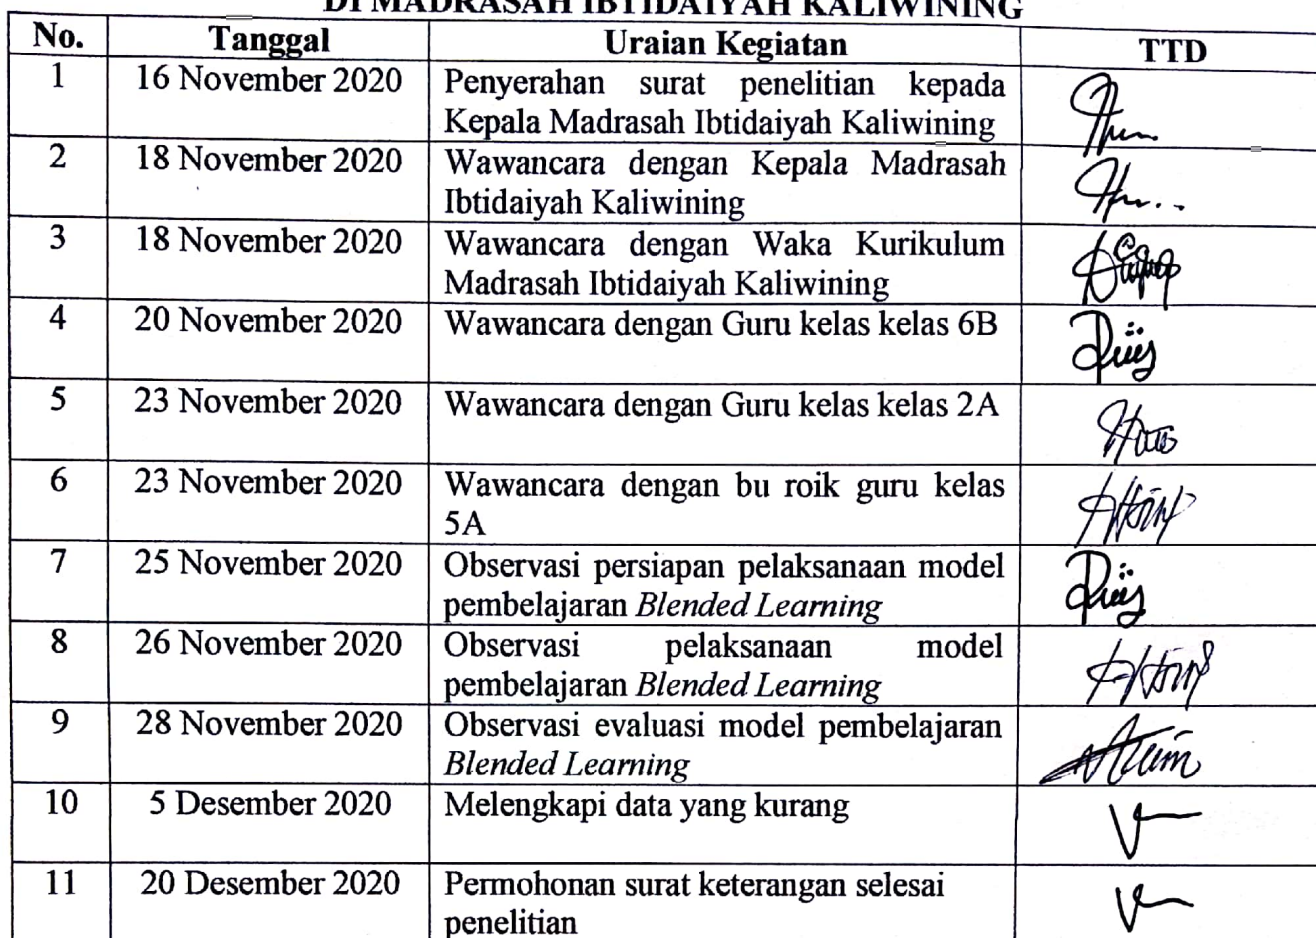 DI MADRASAH IBTIDAIYAH KALIWINING
No. Tanggal Uraian Kegiatan TTD
1 16 November 2020 Penyerahan surat penelitian kepada
Kepala Madrasah Ibtidaiyah Kaliwining
2 18 November 2020 Wawancara dengan Kepala Madrasah
Ibtidaiyah Kaliwining
3 18 November 2020 Wawancara dengan Waka Kurikulum
Madrasah Ibtidaiyah Kaliwining
4 20 November 2020 Wawancara dengan Guru kelas kelas 6B
5 23 November 2020 Wawancara dengan Guru kelas kelas 2A
6 23 November 2020 Wawancara dengan bu roik guru kelas
5A
7 25 November 2020 Observasi persiapan pelaksanaan model
pembelajaran Blended Learning
8 26 November 2020 Observasi pelaksanaan model
pembelajaran Blended Learning
9 28 November 2020 Observasi evaluasi model pembelajaran
Blended Learning
10 5 Desember 2020 Melengkapi data yang kurang
11 20 Desember 2020 Permohonan surat keterangan selesai
penelitian